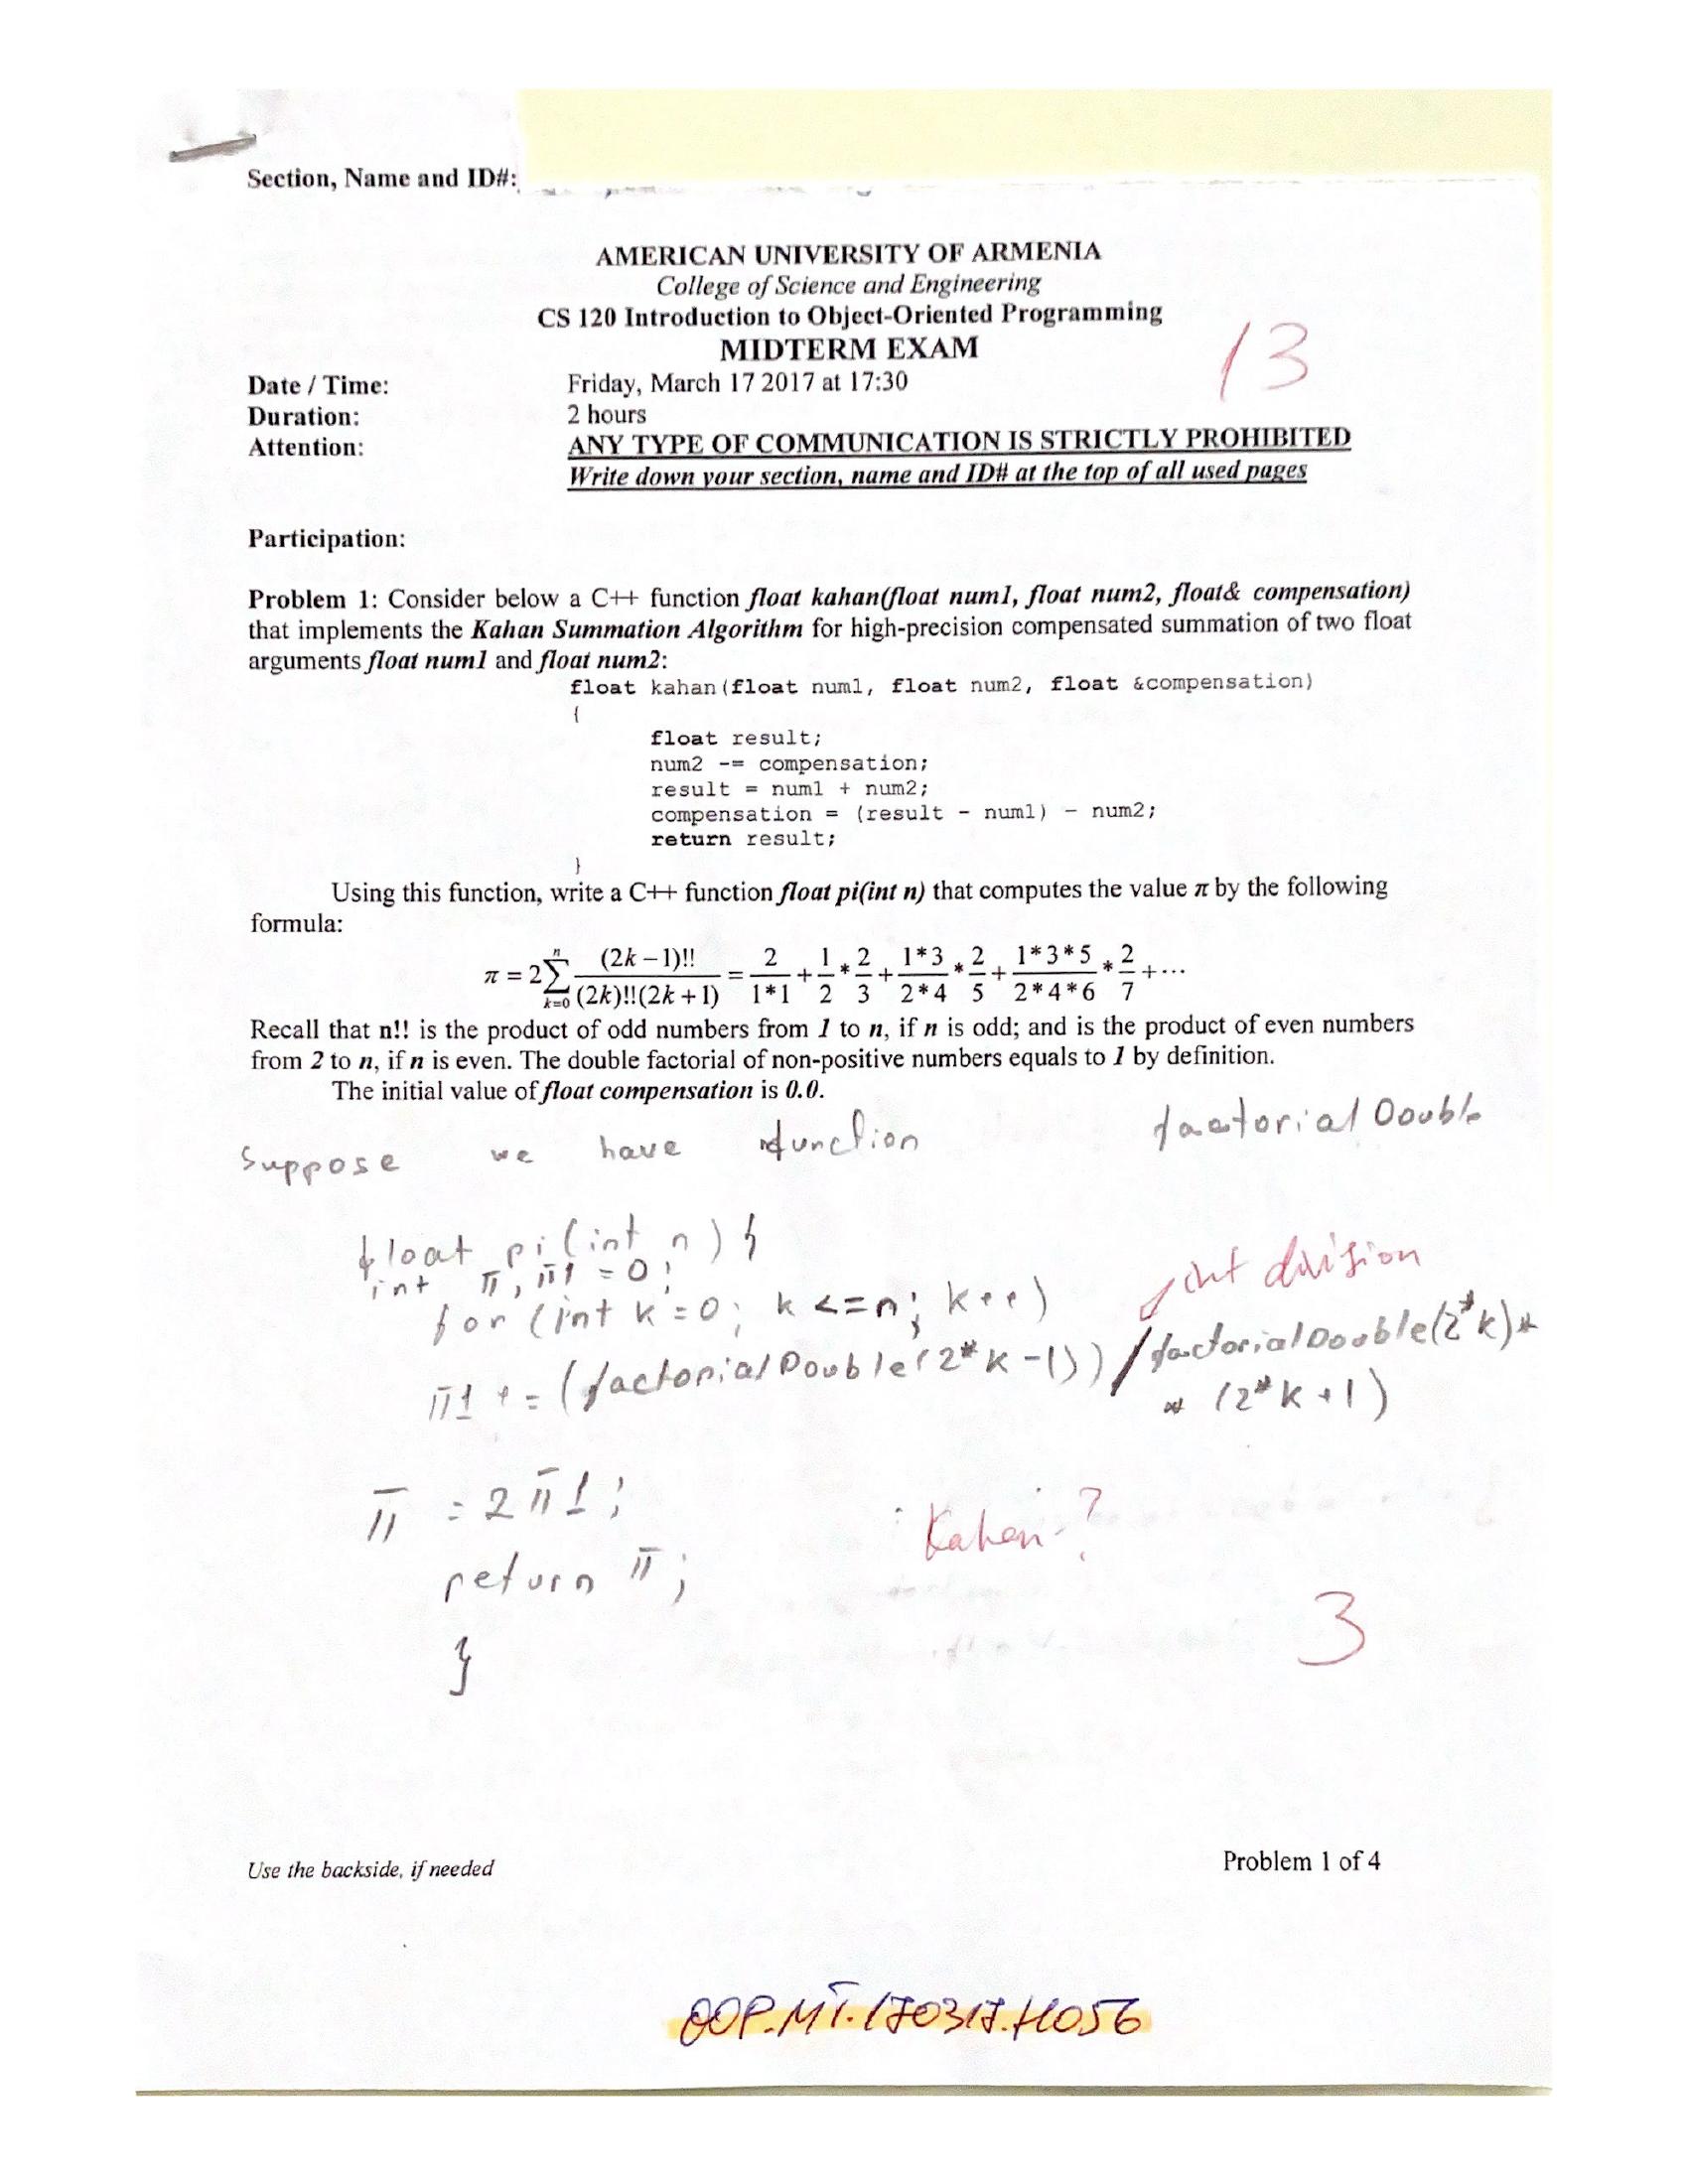 Section, Name and ID#:
AMERICAN UNIVERSITY OF ARMENIA
College of Science and Engineering
CS 120 Introduction to Object-Oriented Programming
MIDTERM EXAM
13
Date / Time: Friday, March 17 2017 at 17:30
Duration: 2 hours
Attention: ANY TYPE OF COMMUNICATION IS STRICTLY PROHIBITED
Write down your section, name and ID# at the top of all used pages
Participation:
Problem 1: Consider below a C++ function float kahan(float num1, float num2, float& compensation)
that implements the Kahan Summation Algorithm for high-precision compensated summation of two float
arguments float num1 and float num2:
float kahan(float num1, float num2, float &compensation)
{
float result;
num2 -= compensation;
result = num1 + num2;
compensation = (result - num1) - num2;
return result;
}
Using this function, write a C++ function float pi(int n) that computes the value π by the following
formula:
π = 2 ∑_{k=0}^{n} (2k – 1)!! / ((2k)!!(2k + 1)) = 2/(1*1) + 1/2 * 2/3 + (1*3)/(2*4) * 2/5 + (1*3*5)/(2*4*6) * 2/7 + ···
Recall that n!! is the product of odd numbers from 1 to n, if n is odd; and is the product of even numbers
from 2 to n, if n is even. The double factorial of non-positive numbers equals to 1 by definition.
The initial value of float compensation is 0.0.
Suppose we have function factorialDouble
float pi(int n) {
int π, π1 = 0;
int division
for (int k=0; k <=n; k++)
π1 += (factorialDouble(2*k-1)) / factorialDouble(2*k)*
* (2*k+1)
π = 2π1;
Kahan-?
return π;
3
}
Use the backside, if needed
Problem 1 of 4
OOP.MT.170317.H056